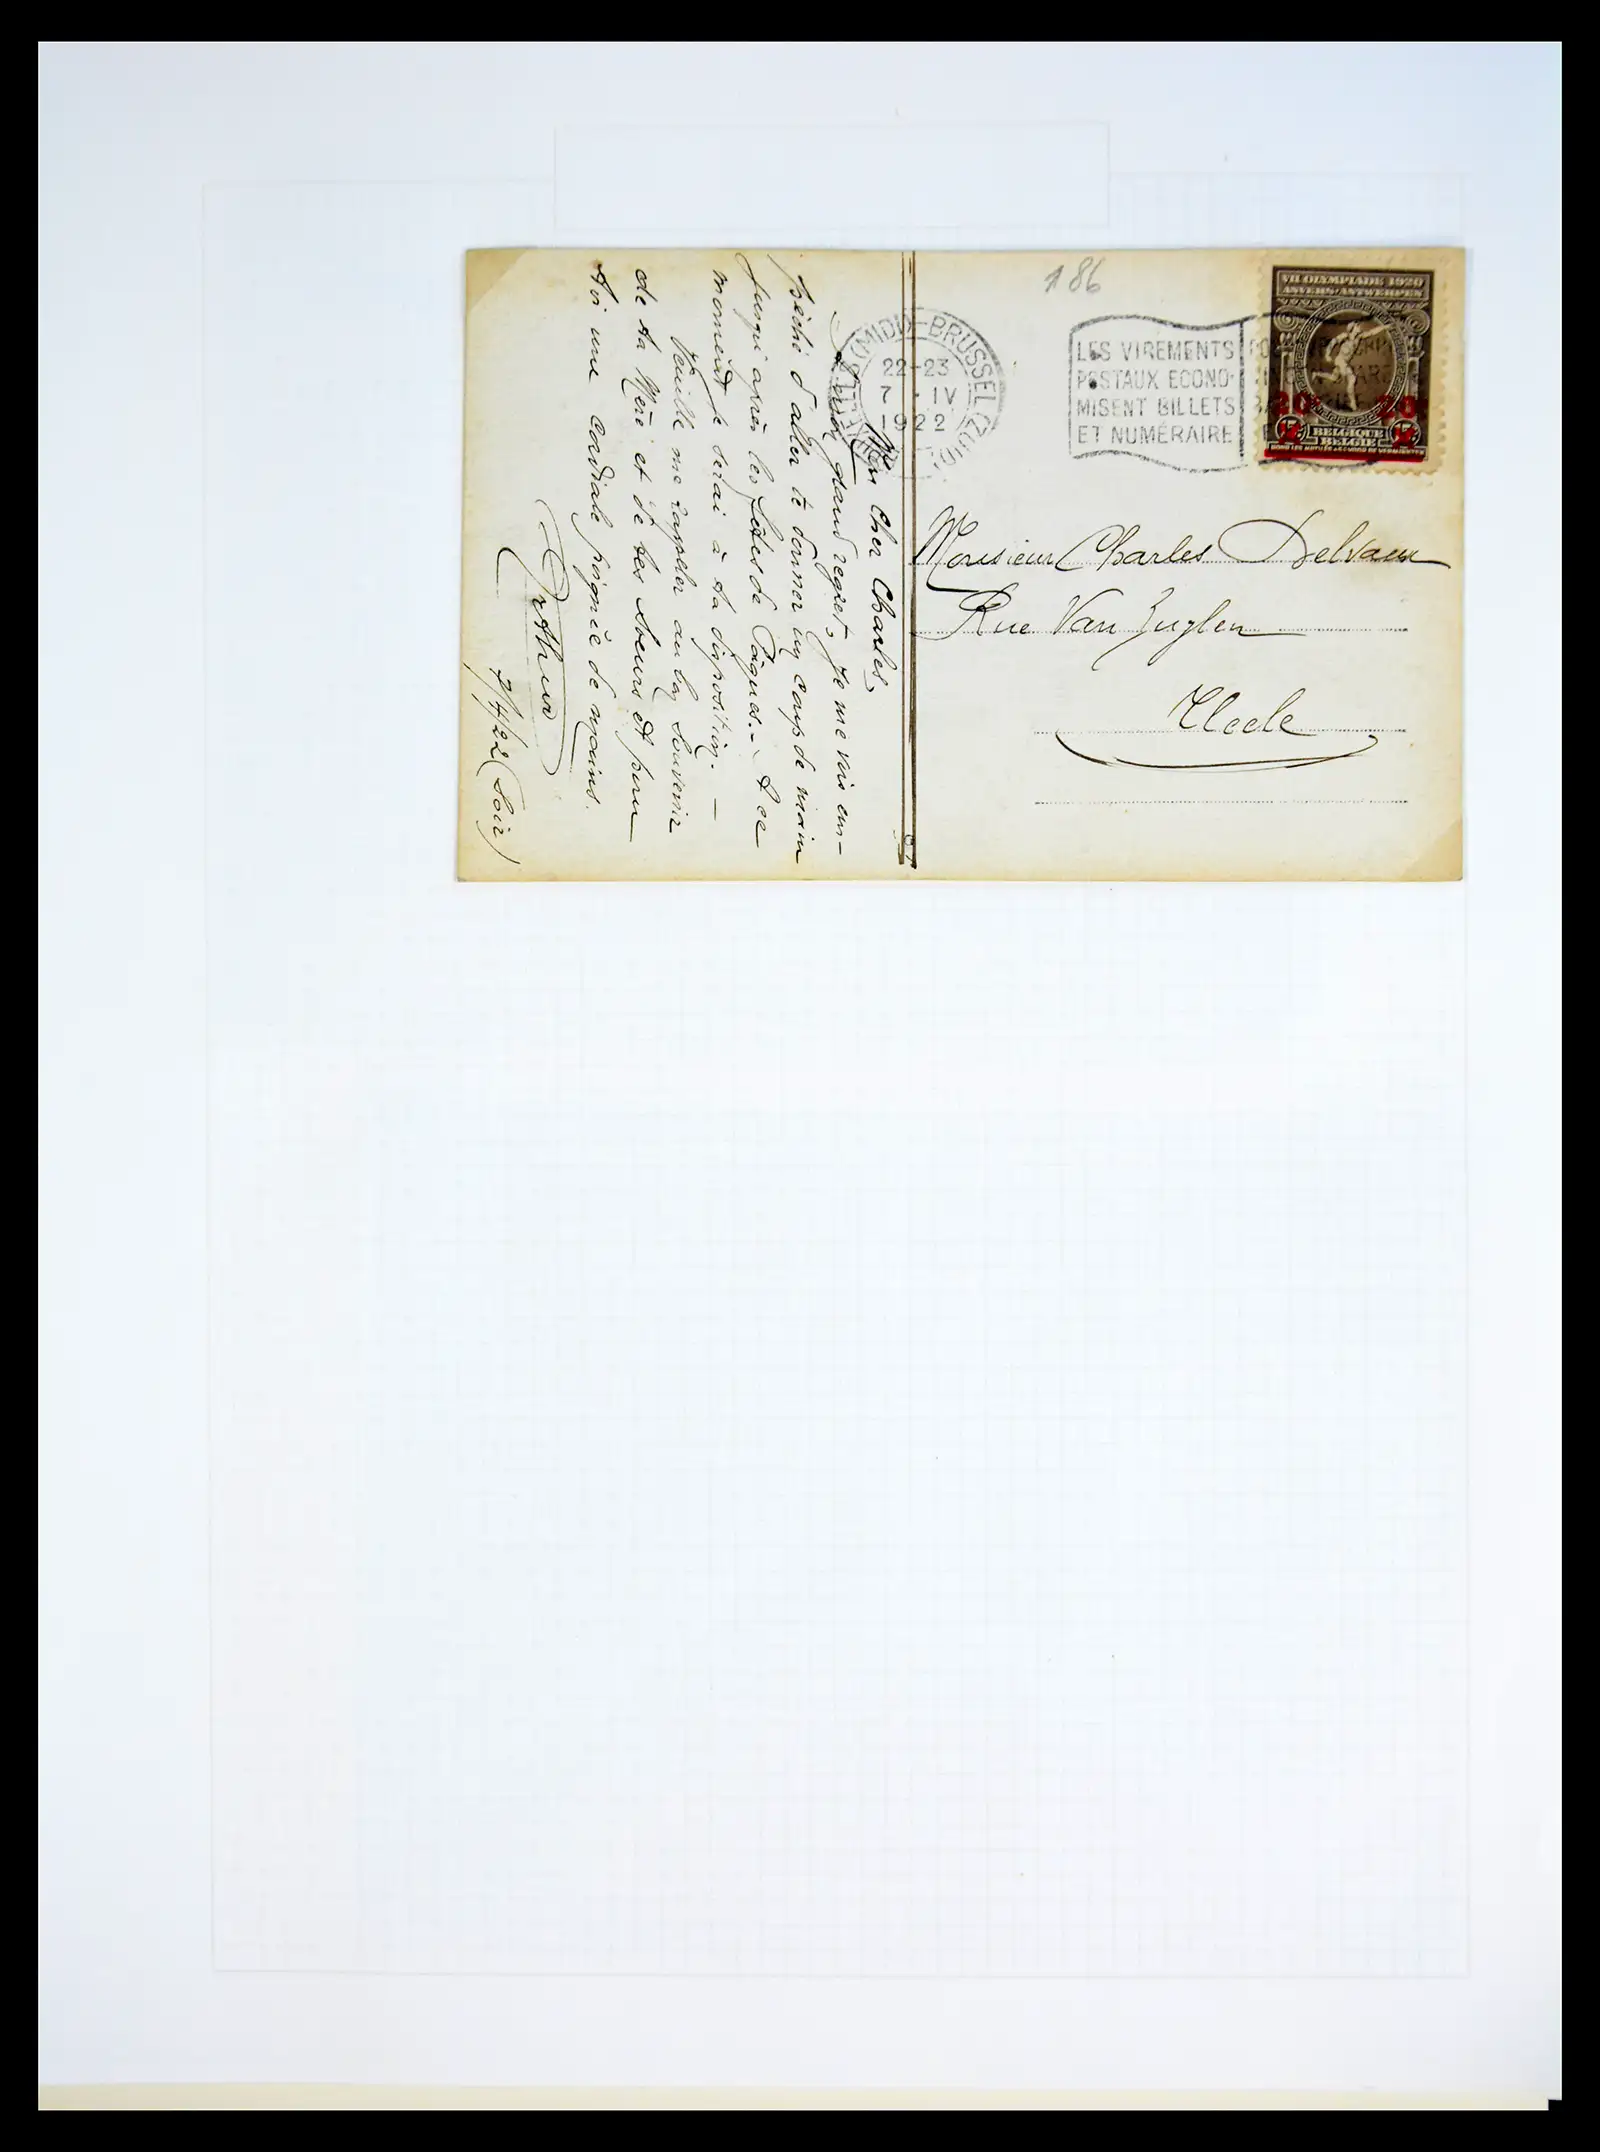 186
BRUXELLES (MIDI)-BRUSSEL (ZUID)
22-23
7-IV
1922
LES VIREMENTS
POSTAUX ECONO-
MISENT BILLETS
ET NUMÉRAIRE
VII OLYMPIADE 1920
ANVERS-ANTWERPEN
20 20
BELGIQUE
BELGIË
Monsieur Charles Delvaux
Rue Van Zuylen
Uccle
Mon cher Charles,
grand regret, je me vois em-
pêché d'aller te donner un coup de main
jusqu'après les fêtes de Pâques. - A ce
moment je serai à ta disposition. -
Veuille me rappeler au bon souvenir
de ta Mère et de tes soeurs et pour
toi une cordiale poignée de mains.
Arthur
7/4/22 (Soir)